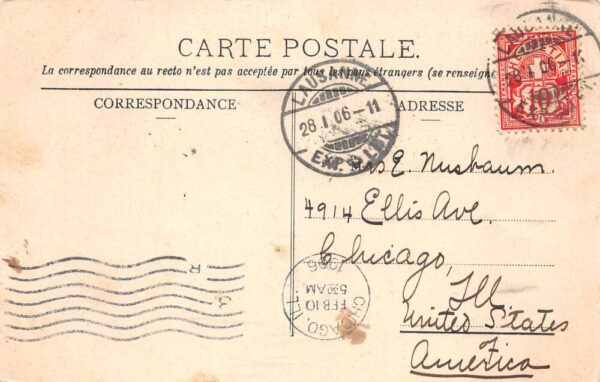 CARTE POSTALE.
La correspondance au recto n'est pas acceptée par tous les pays étrangers (se renseigne
CORRESPONDANCE
ADRESSE
LAUSANNE
28.I.06-11
EXP. LETT.
28.I.06
HELVETIA
10
Mrs E. Nusbaum.
4914 Ellis Ave.
Chicago,
Ill.
United States
America
CHICAGO, ILL.
FEB 10
5 30 AM
1906